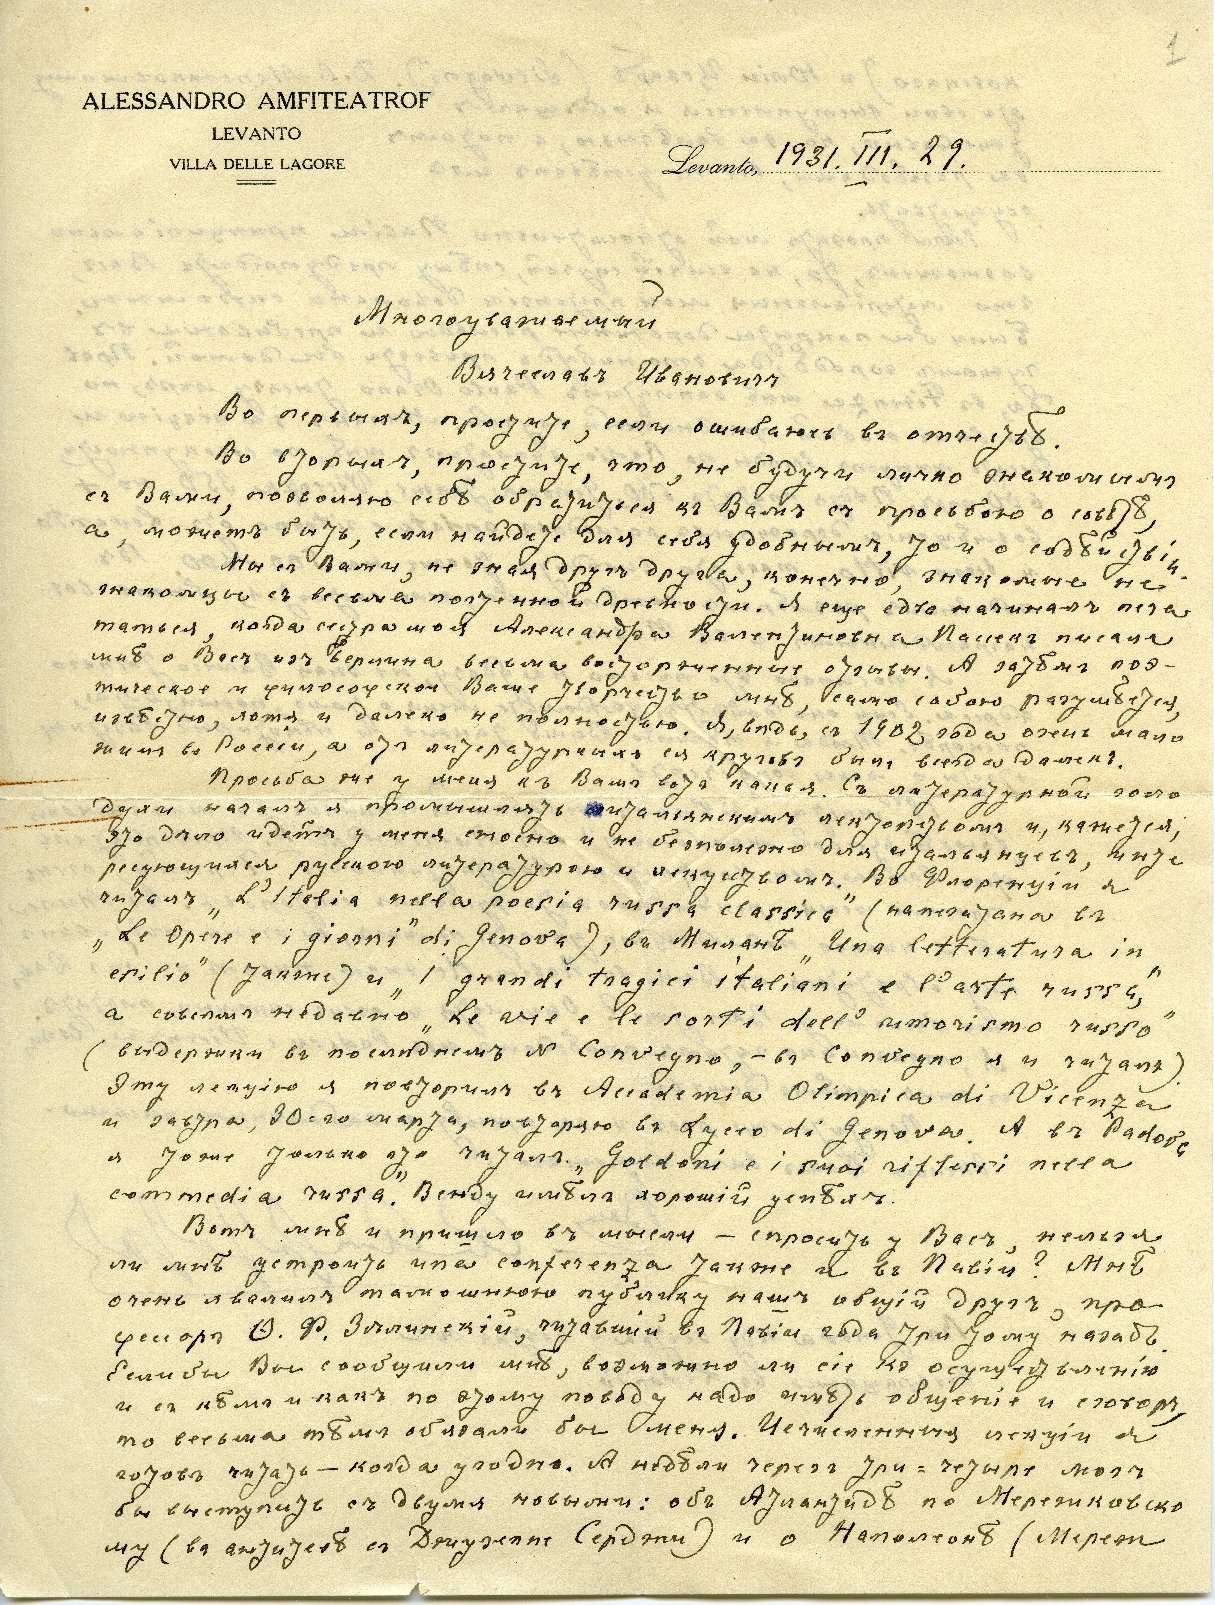 1
ALESSANDRO AMFITEATROF
LEVANTO
VILLA DELLE LAGORE
Levanto, 1931. III. 29.
Многоуважаемый
Вячеславъ Ивановичъ
Во первыхъ, простите, если ошибаюсь въ отчествѣ.
Во вторыхъ, простите, что, не будучи лично знакомымъ
съ Вами, позволяю себѣ обратиться къ Вамъ съ просьбою о совѣтѣ,
а, можетъ быть, если найдете для себя удобнымъ, то и о содѣйствіи.
Мы съ Вами, не зная другъ друга, конечно, знакомые не
знакомцы съ весьма почтенной древности. Я еще едва начиналъ печа
таться, когда сестра моя Александра Валентиновна Пассекъ писала
мнѣ о Васъ изъ Берлина весьма восторженные отзывы. А затѣмъ поэ-
тическое и философское Ваше творчество мнѣ, само собою разумѣется,
извѣстно, хотя и далеко не полностью. Я, вѣдь, съ 1902 года очень мало
жилъ въ Россіи, а отъ литературныхъ ея круговъ былъ всегда далекъ.
Просьба же у меня къ Вамъ вотъ какая. Съ литературной голо
духи началъ я промышлять итальянскимъ лекторствомъ и, кажется,
это дѣло идетъ у меня сносно и не безполезно для итальянцевъ, инте
ресующихся русскою литературою и искусствомъ. Во Флоренціи я
читалъ „L'Italia nella poesia russa classica" (напечатана въ
„Le Opere e i giorni" di Genova), въ Миланѣ „Una letteratura in
esilio" (также) и „I grandi tragici italiani e l'arte russa",
а совсемъ недавно „Le vie e le sorti dell' umorismo russo"
(выдержки въ последнемъ № Convegno, – въ Convegno я и читалъ).
Эту лекцію я повторилъ въ Accademia Olimpica di Vicenza
и завтра, 30-го марта, повторяю въ Lyceo di Genova. А въ Padova
я тоже только что читалъ „Goldoni e i suoi riflessi nella
commedia russa". Всюду имѣлъ хорошій успѣхъ.
Вотъ мнѣ и пришло въ мысли – спросить у Васъ, нельзя
ли мнѣ устроить una conferenza также и въ Павіи? Мнѣ
очень хвалилъ тамошнюю публику нашъ общій другъ, про
фессоръ Ѳ. Ф. Зѣлинскій, читавшій въ Павіи года три тому назадъ.
Если бы Вы сообщили мнѣ, возможно ли сіе къ осуществленію
и съ кѣмъ и какъ по этому поводу надо имѣть общеніе и сговоръ,
то весьма тѣмъ обязали бы меня. Исчисленныя лекціи я
готовъ читать – когда угодно. А недѣли черезъ три-четыре могъ
бы выступить съ двумя новыми: объ Атлантидѣ по Мережковско
му (въ антитезѣ съ Джузеппе Серджи) и о Наполеонѣ (Мереж